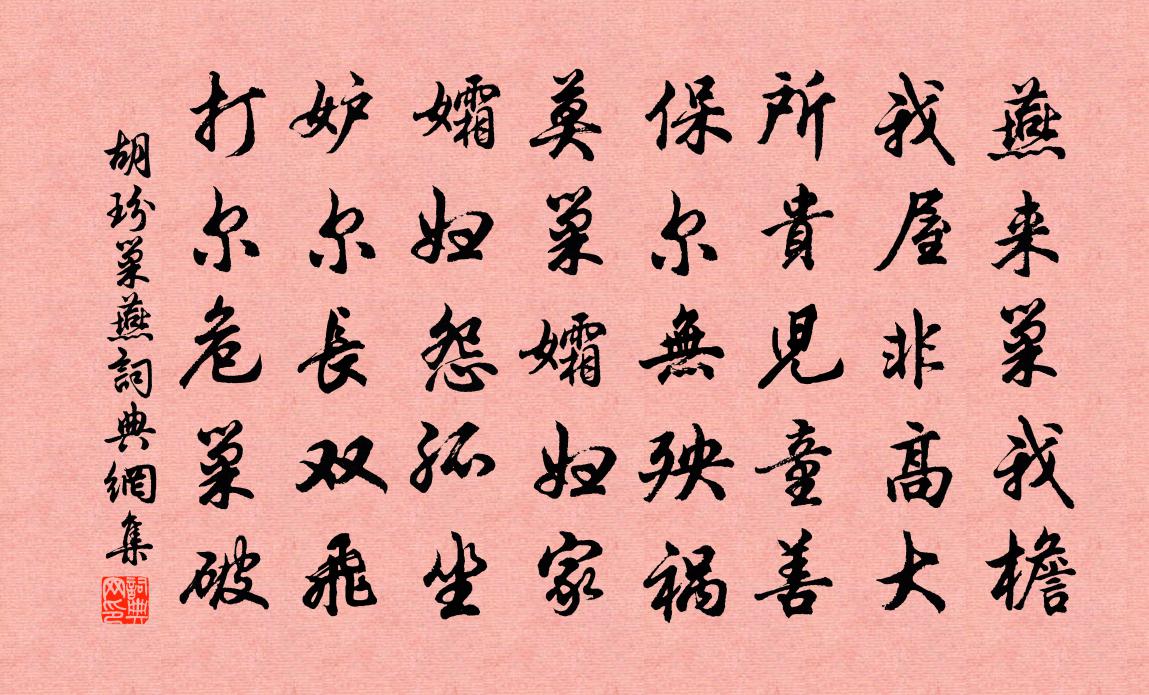 燕来巢我檐
我屋非高大
所貴児童善
保尔無殃祸
莫巢孀妇家
孀妇怨孤坐
妒尔長双飛
打尔危巢破
胡玢巢燕詞典網集
詞典网印